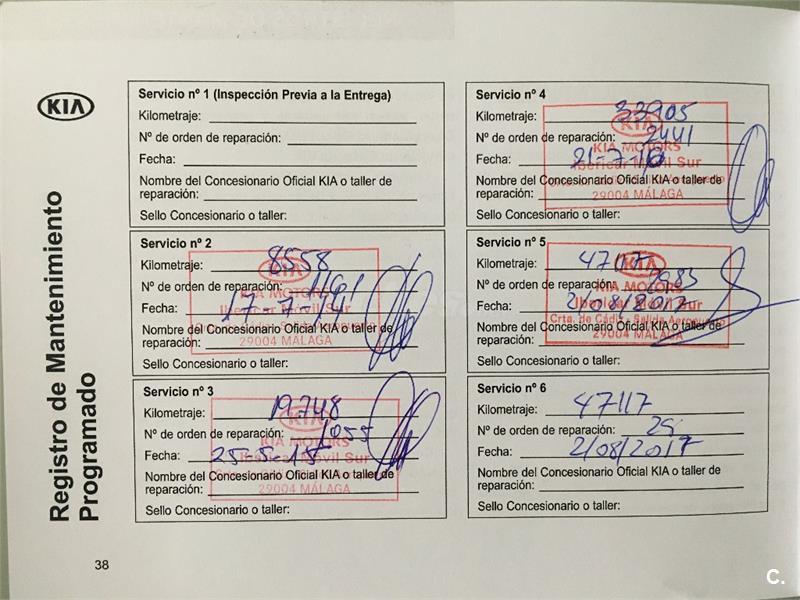 KIA
Registro de Mantenimiento
Programado
Servicio nº 1 (Inspección Previa a la Entrega)
Kilometraje:
Nº de orden de reparación:
Fecha:
Nombre del Concesionario Oficial KIA o taller de
reparación:
Sello Concesionario o taller:
Servicio nº 2
Kilometraje: 8558
Nº de orden de reparación: 1161
KIA MOTORS
Fecha: 17-7-14
Ibericar Móvil Sur
Nombre del Concesionario Oficial KIA o taller de
reparación:
29004 MÁLAGA
Sello Concesionario o taller:
Servicio nº 3
Kilometraje: 19748
Nº de orden de reparación: 1055
KIA MOTORS
Fecha: 25-5-15
Ibericar Móvil Sur
Nombre del Concesionario Oficial KIA o taller de
reparación:
29004 MÁLAGA
Sello Concesionario o taller:
Servicio nº 4
Kilometraje: 33905
KIA
Nº de orden de reparación: 2441
KIA MOTORS
Fecha: 21-7-16
Ibericar Móvil Sur
Nombre del Concesionario Oficial KIA o taller de
reparación:
29004 MÁLAGA
Sello Concesionario o taller:
Servicio nº 5
Kilometraje: 47117
KIA
Nº de orden de reparación: 2985
KIA MOTORS
Fecha: 2/08/2017
Ibericar Móvil Sur
Crta. de Cádiz - Salida Aeropuerto
Nombre del Concesionario Oficial KIA o taller de
reparación:
29004 MÁLAGA
Sello Concesionario o taller:
Servicio nº 6
Kilometraje: 47117
Nº de orden de reparación: 29
Fecha: 2/08/2017
Nombre del Concesionario Oficial KIA o taller de
reparación:
Sello Concesionario o taller:
38
C.